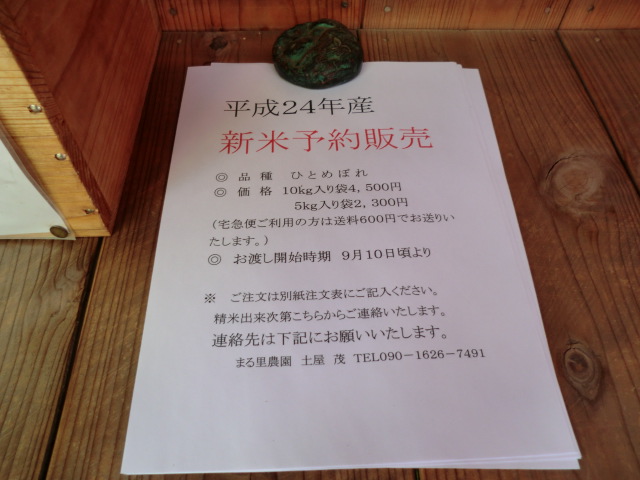 平成24年産
新米予約販売
◎ 品 種 ひとめぼれ
◎ 価 格 10kg入り袋4,500円
5kg入り袋2,300円
(宅急便ご利用の方は送料600円でお送りい
たします。)
◎ お渡し開始時期 9月10日頃より
※ ご注文は別紙注文表にご記入ください。
精米出来次第こちらからご連絡いたします。
連絡先は下記にお願いいたします。
まる里農園 土屋 茂 TEL090-1626-7491